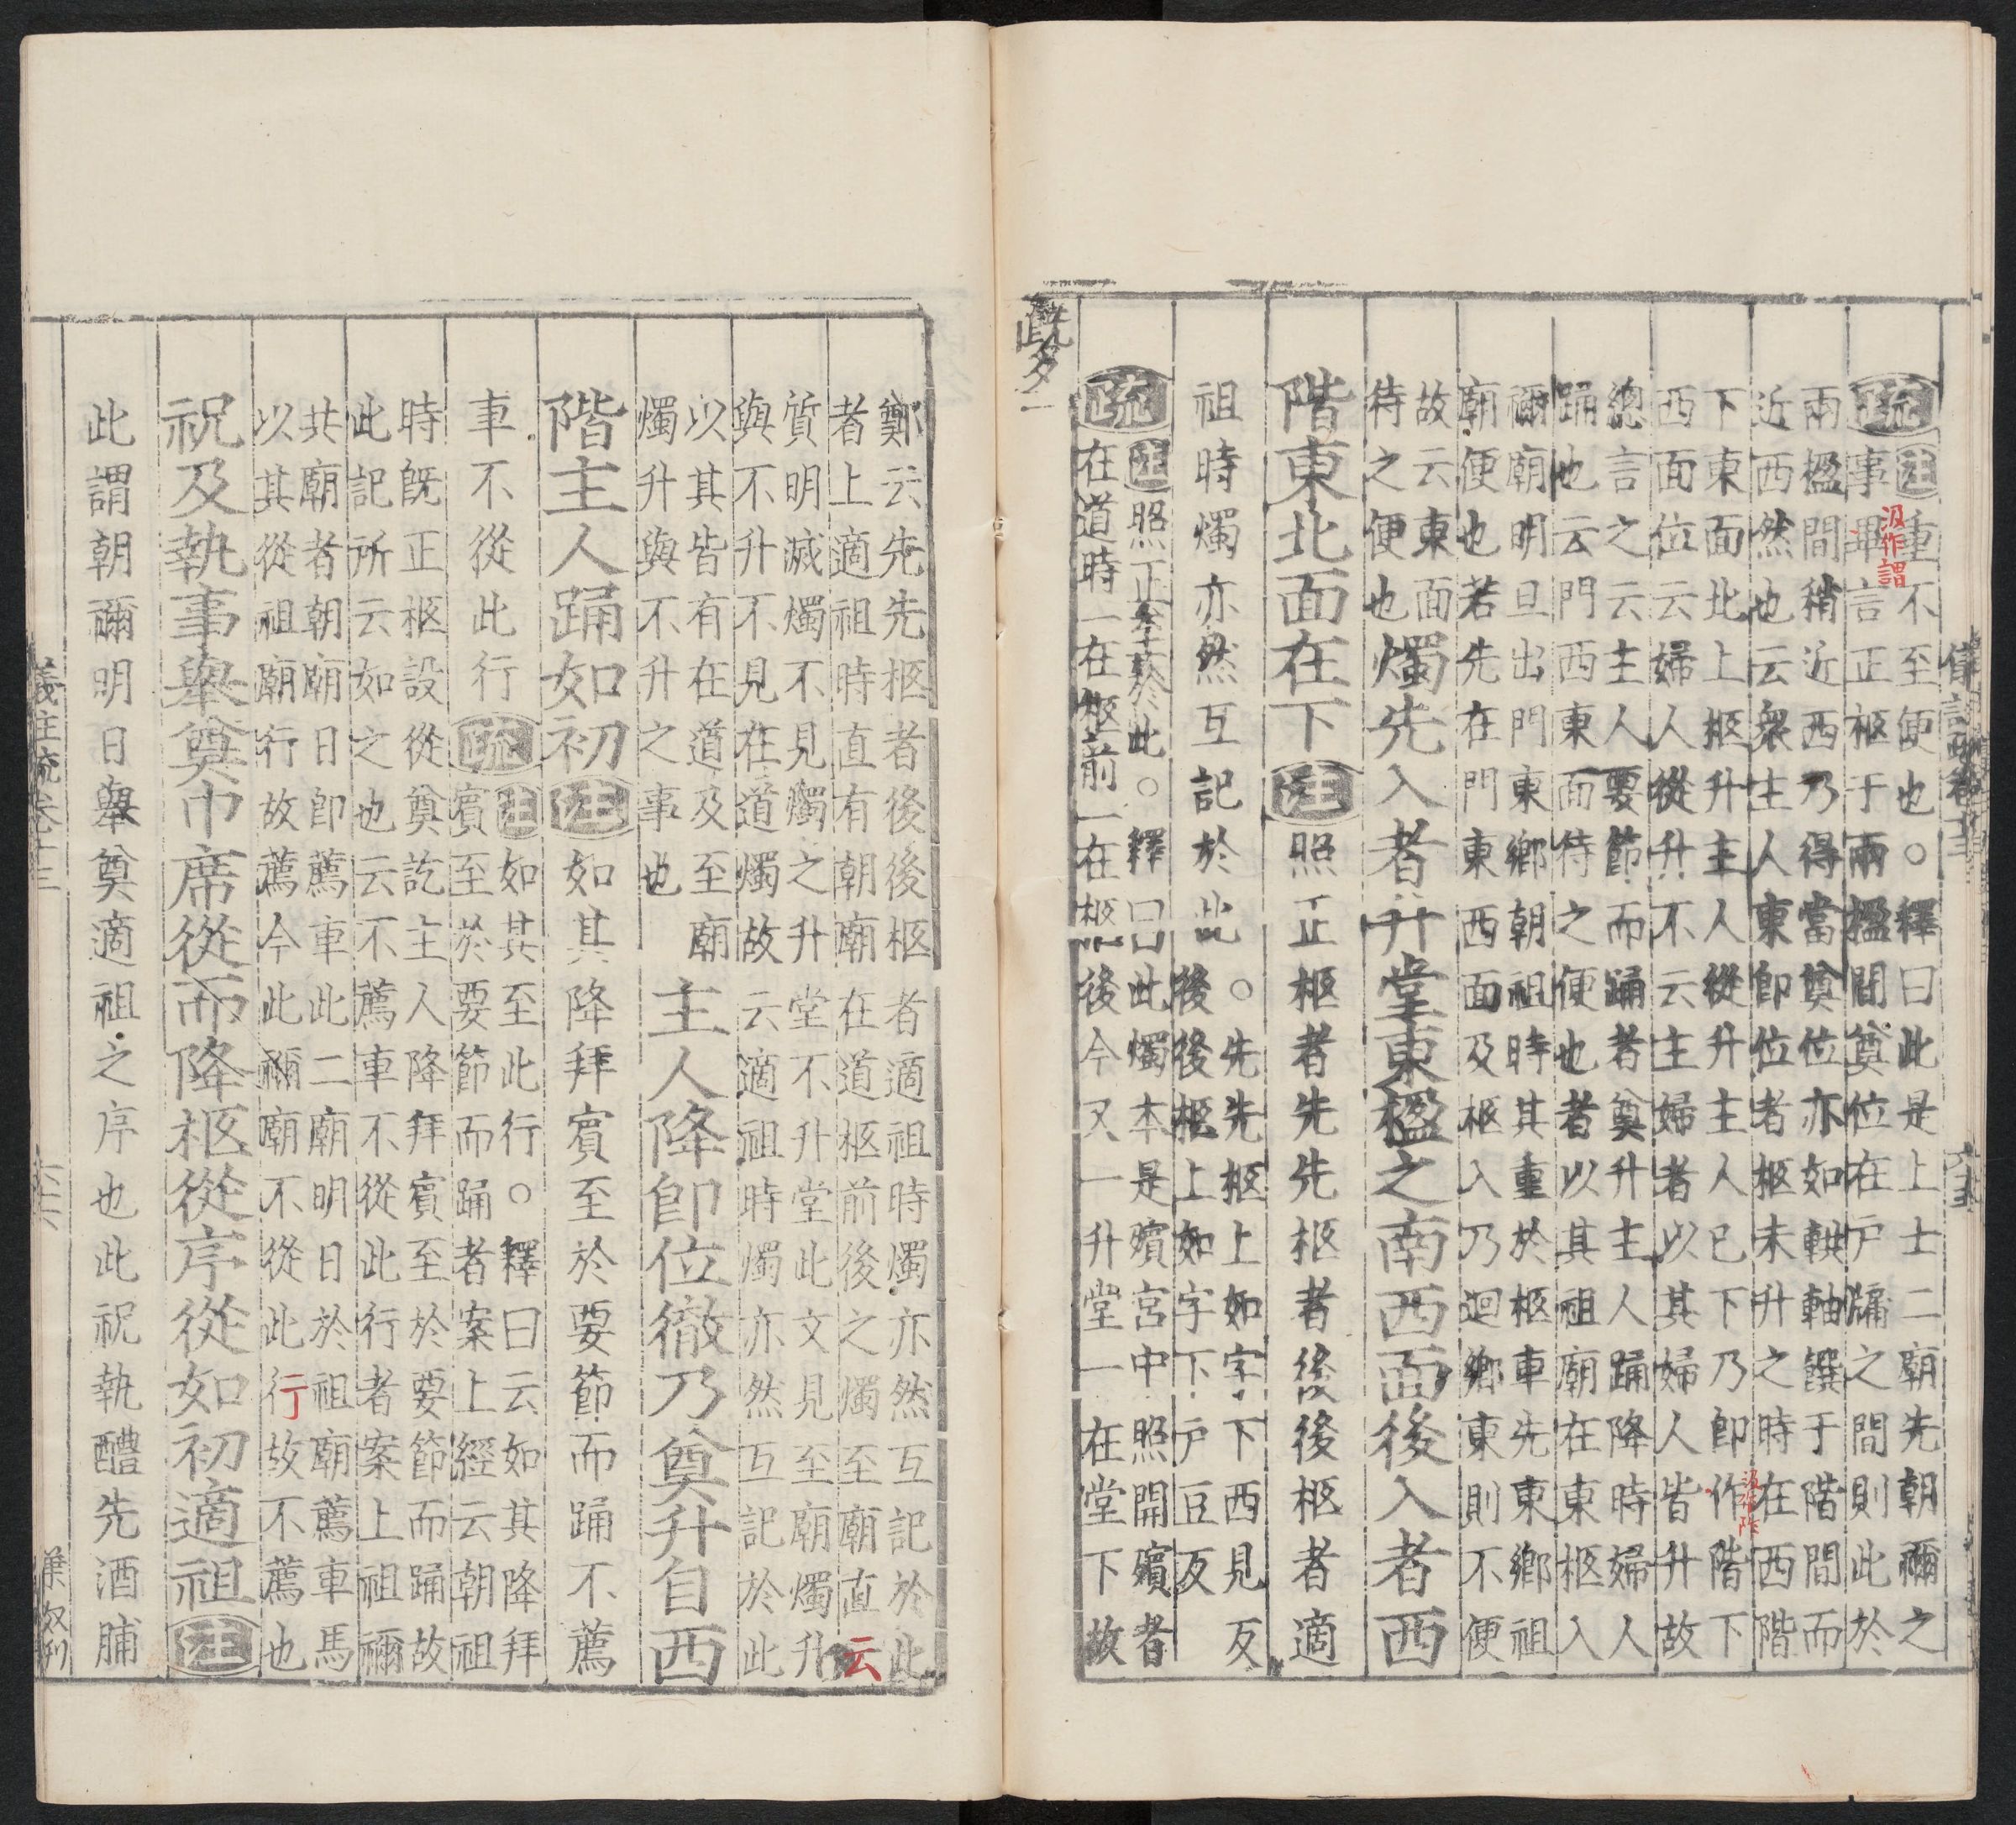 疏 注重不至便也○釋曰此是上士二廟先朝禰之
事畢言正柩于兩楹間奠位在戶牖之間則此於
汲作謂
兩楹間稍近西乃得當奠位亦如輁軸饌于階間而
近西然也云衆主人東即位者柩未升之時在西階
下東面北上柩升主人從升主人已下乃即作階下
汲作阼
西面位云婦人從升不云主婦者以其婦人皆升故
總言之云主人要節而踊者奠升主人踊降時婦人
踊也云門西東面待之便也者以其祖廟在東柩入
禰廟明旦出門東鄉朝祖時其重於柩車先東鄉祖
廟便也若先在門東西面及柩入乃迴鄉東則不便
故云東面
待之便也燭先入者升堂東楹之南西面後入者西
階東北面在下注照正柩者先先柩者後後柩者適
祖時燭亦然互記於此○先先柩上如字下西見反
後後柩上如字下戶豆反
疏 注照正至於此○釋曰此燭本是殯宮中照開殯者
在道時一在柩前一在柩後今又一升堂一在堂下故
既夕二
鄭云先先柩者後後柩者適祖時燭亦然互記於此
者上適祖時直有朝廟在道柩前後之燭至廟直云
質明滅燭不見燭之升堂不升堂此文見至廟燭升
與不升不見在道燭故云適祖時燭亦然互記於此
以其皆有在道及至廟
燭升與不升之事也主人降即位徹乃奠升自西
階主人踊如初注如其降拜賓至於要節而踊不薦
車不從此行疏 注如其至此行○釋曰云如其降拜
賓至於要節而踊者案上經云朝祖
時既正柩設從奠訖主人降拜賓至於要節而踊故
此記所云如之也云不薦車不從此行者案上祖禰
共廟者朝廟日即薦車此二廟明日於祖廟薦車馬
以其從祖廟行故薦今此禰廟不從此行故不薦也
祝及執事舉奠巾席從而降柩從序從如初適祖注
此謂朝禰明日舉奠適祖之序也此祝執醴先酒脯